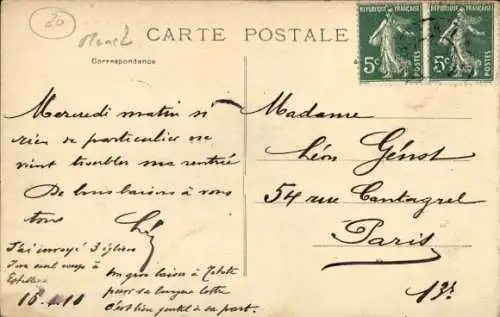 20
CARTE POSTALE
Correspondance
RÉPUBLIQUE FRANÇAISE
5c POSTES
RÉPUBLIQUE FRANÇAISE
5c POSTES
Mercredi matin si
rien de particulier ne
vient troubler ma rentrée
De bons baisers à vous
tous
J'ai envoyé 3 églises
à
un gros baiser à
pour sa longue lettre
c'est bien gentil à sa part.
Madame
Léon Génot
54 rue Cantagrel
Paris
13e